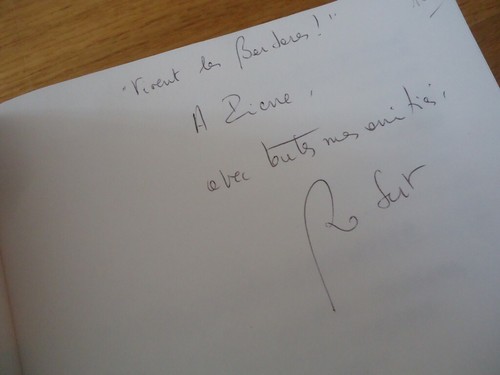 "Vivent les Bordores!"
A Pierre,
avec toutes mes amitiés.